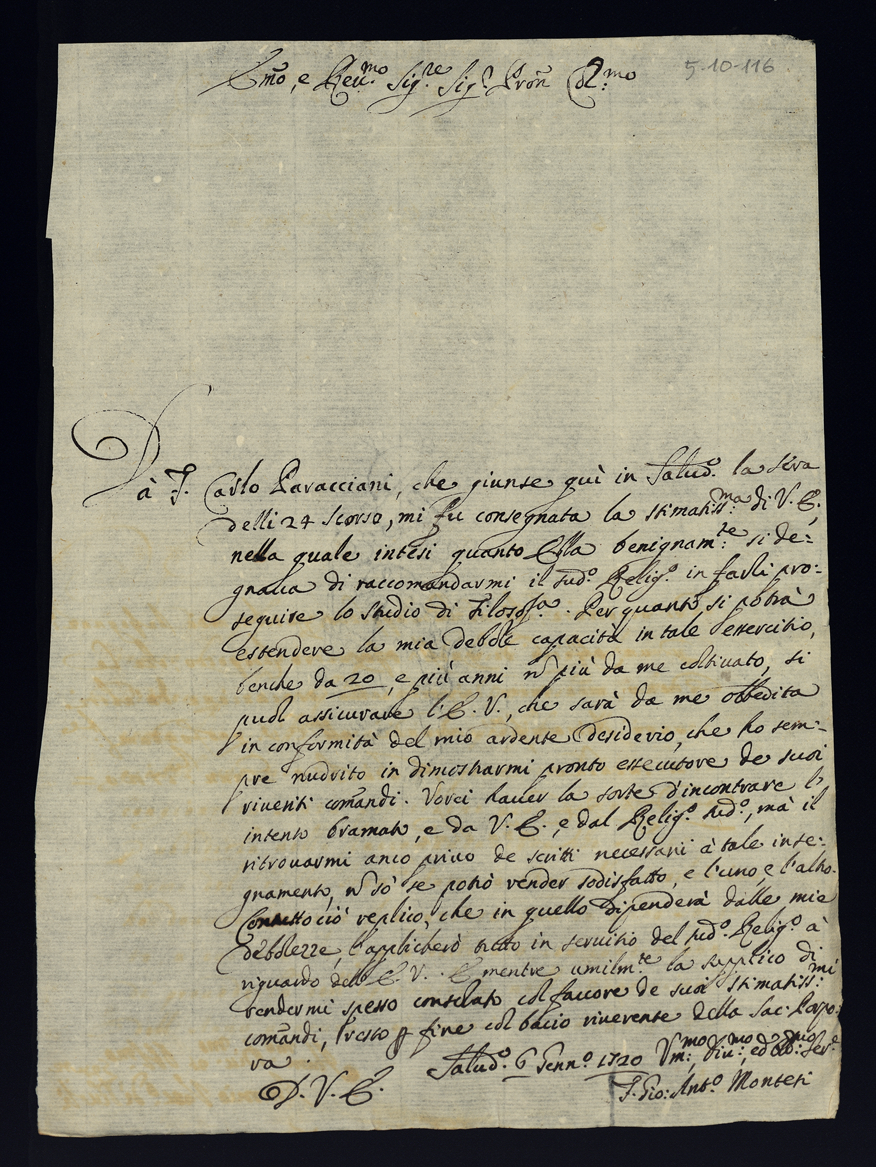 5-10-116
Em̃o, e Reu:mo Sig:re Sig:r Pron̄ Col:mo
Dà F. Carlo Paracciani, che giunse quì in Salud:o la sera
delli 24 scorso, mi fu consegnata la stimatiss:ma di V. E.,
nella quale intesi quanto Ella benignam:te si de=
gnaua di raccomandarmi il sud:o Relig:o in farli pro=
seguire lo studio di Filosof:a. Per quanto si potrà
estendere la mia debole capacità in tale essercitio,
benche da 20, e più anni nõ più da me coltiuato, si
puol assicurare l'E. V., che sarà da me obbedita
in conformità del mio ardente desiderio, che ho sem=
pre nudrito in dimostrarmi pronto essecutore de suoi
riueriti com̃andi. Vorei hauer la sorte d'incontrare l'
intento bramato, e da V. E., e dal Relig:o sud:o, mà il
ritrouarmi anco priuo de scritti necessari à tale inse=
gnamento, nõ sò se potrò render sodisfatto, e l'uno, e l'altro.
Contuttociò replico, che in quello dipenderà dalle mie
debolezze, l'applicherò tutto in seruitio del sud:o Relig:o à
riguardo dell'E. V. E mentre umilm:te la supplico di
rendermi spesso consolato col fauore de suoi stimatiss:mi
com̃andi, resto p fine col bacio riuerente della Sac: Porpo=
ra.
D. V. E. Salud:o 6 Genn:o 1720 Vm:mo, Diu:mo, ed Obb:mo Ser:e
F. Gio: Ant:o Monteti